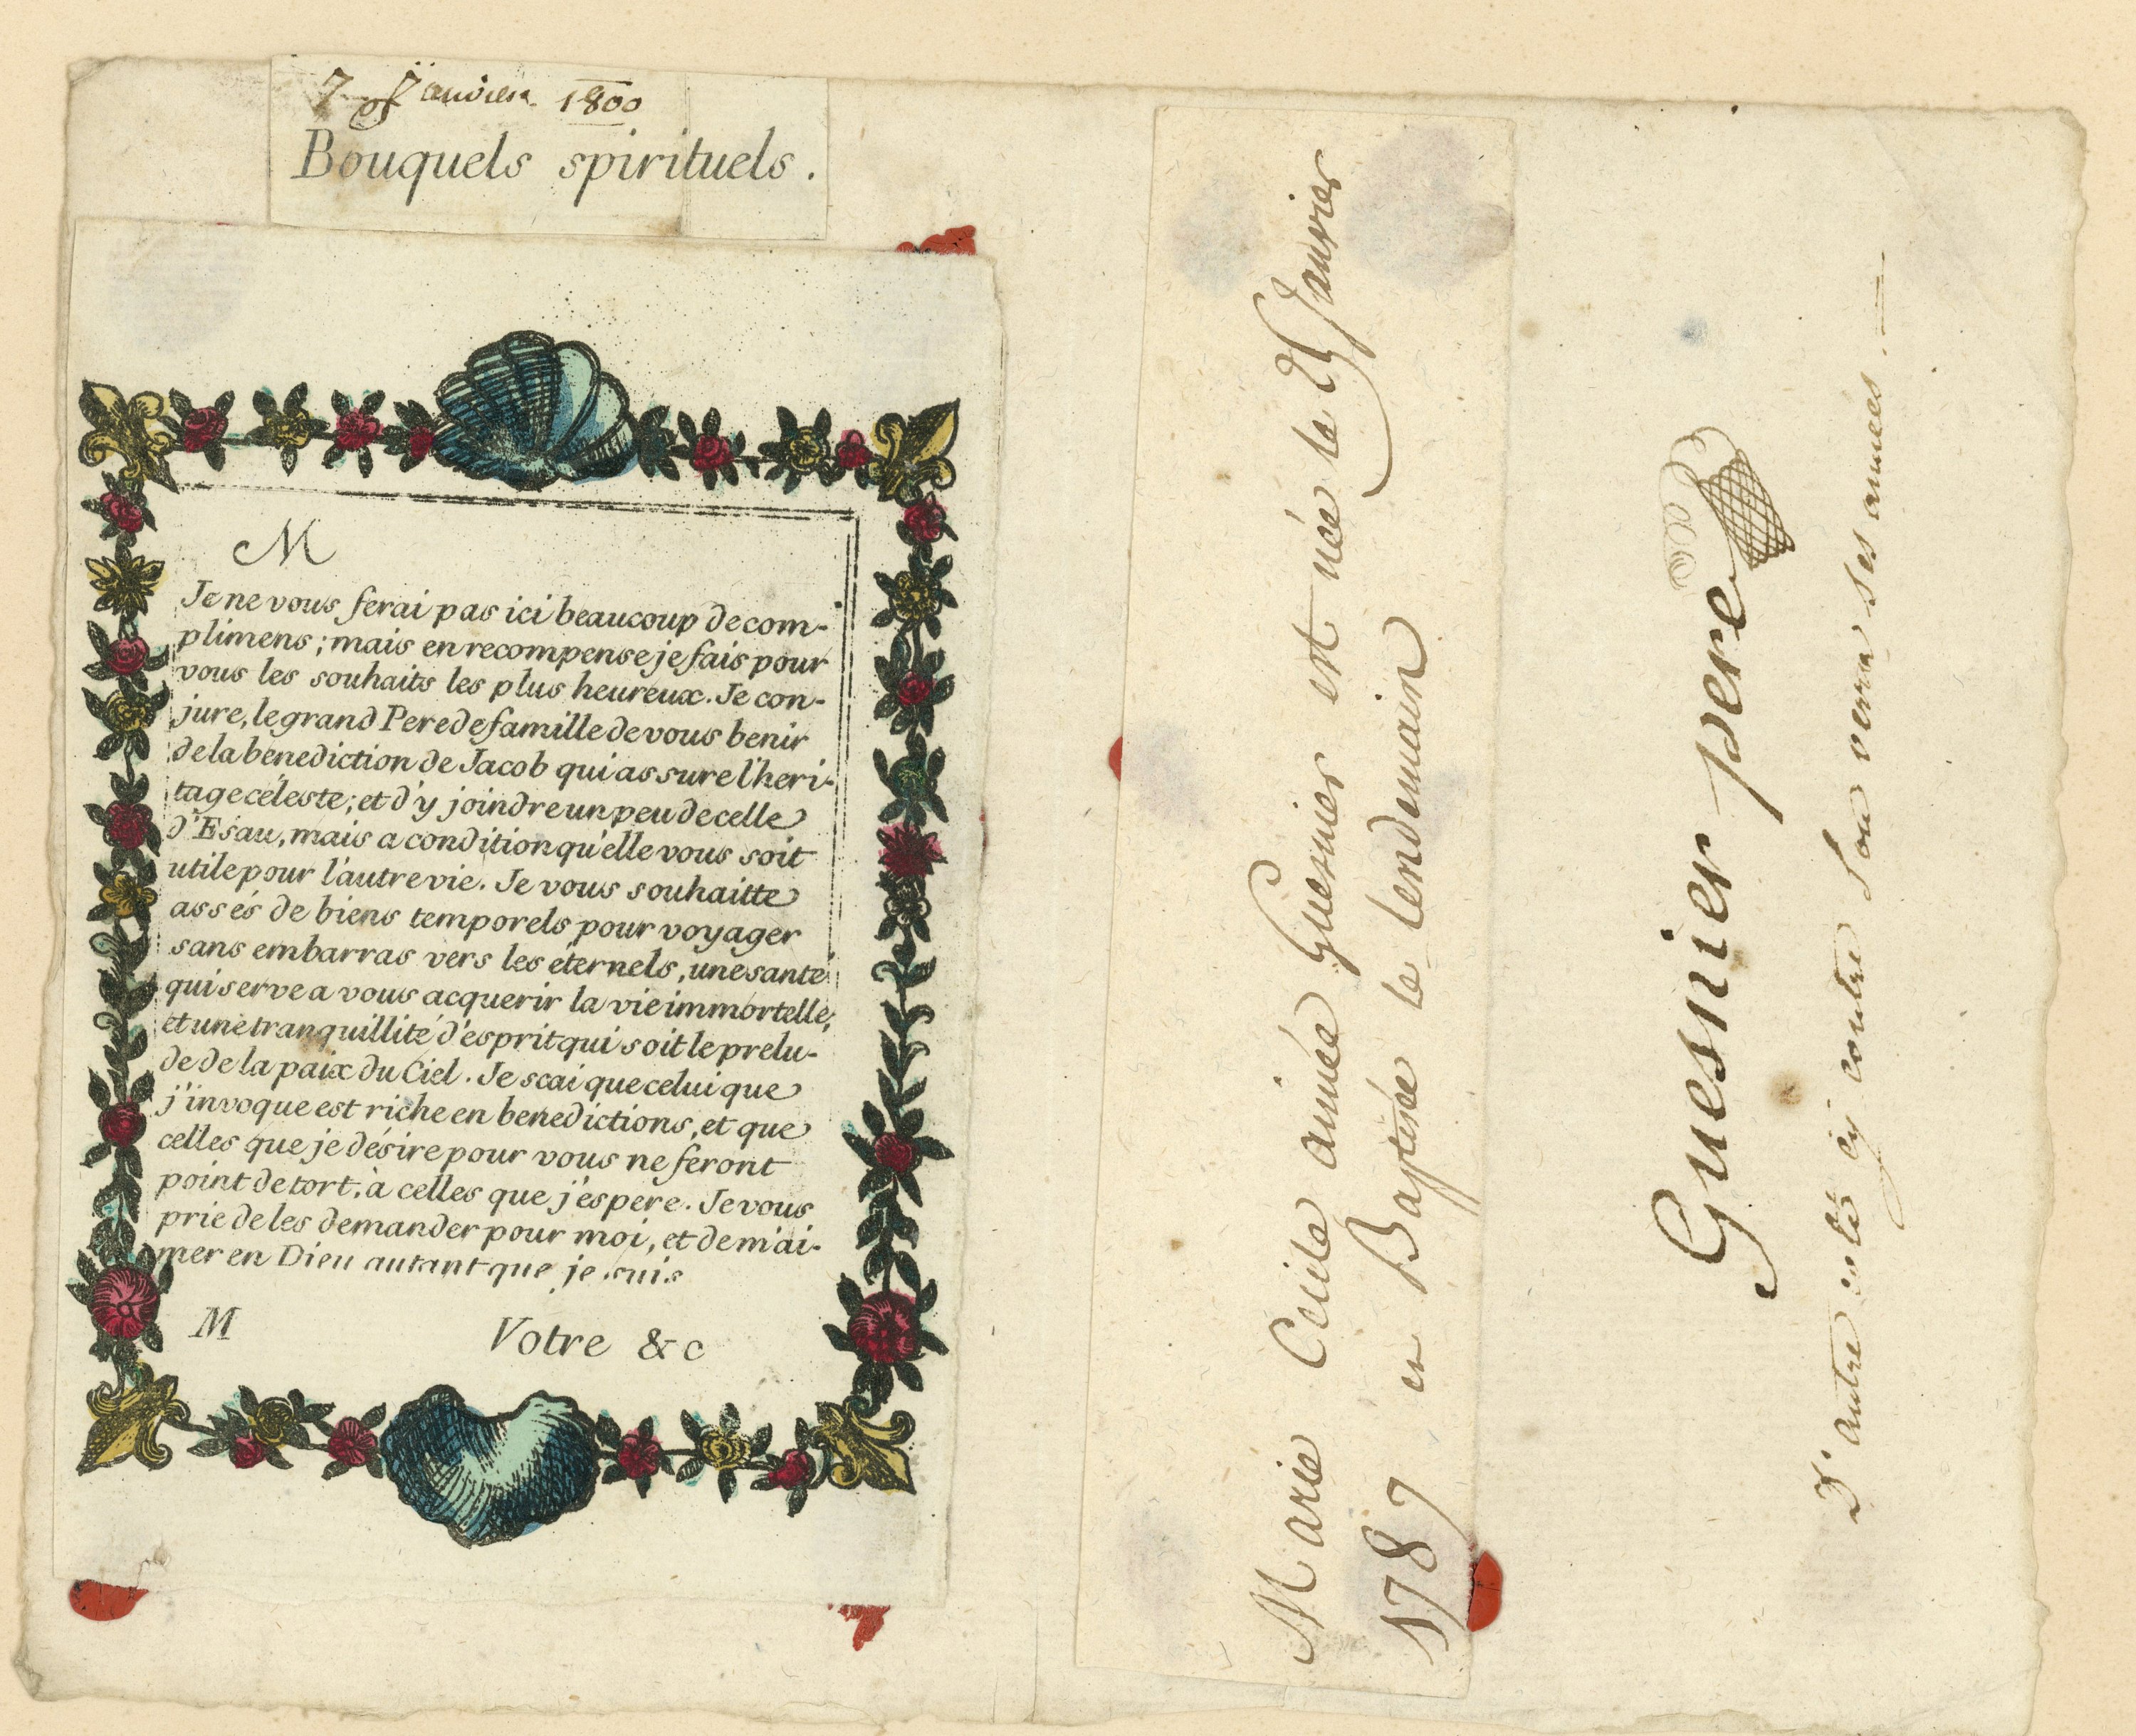 7 Janvier 1800
Bouquets spirituels.
M
Je ne vous ferai pas ici beaucoup de com-
plimens ; mais en recompense je fais pour
vous les souhaits les plus heureux. Je con-
jure, le grand Pere de famille de vous benir
de la benediction de Jacob qui assure l'heri-
tage céleste ; et d'y joindre un peu de celle
d'Esau, mais a condition qu'elle vous soit
utile pour l'autre vie. Je vous souhaitte
assés de biens temporels pour voyager
sans embarras vers les éternels, une santé
qui serve a vous acquerir la vie immortelle,
et une tranquillité d'esprit qui soit le prelu-
de de la paix du Ciel. Je scai que celui que
j'invoque est riche en benedictions, et que
celles que je désire pour vous ne feront
point de tort, à celles que j'éspere. Je vous
prie de les demander pour moi, et de m'ai-
mer en Dieu autant que je suis
M Votre &c
Marie Cecile aimée Guesnier est née le Janvier
1787 en Baptisée le lendemain
Guesnier pere
D'autre coté cy contre Son verra ses années.